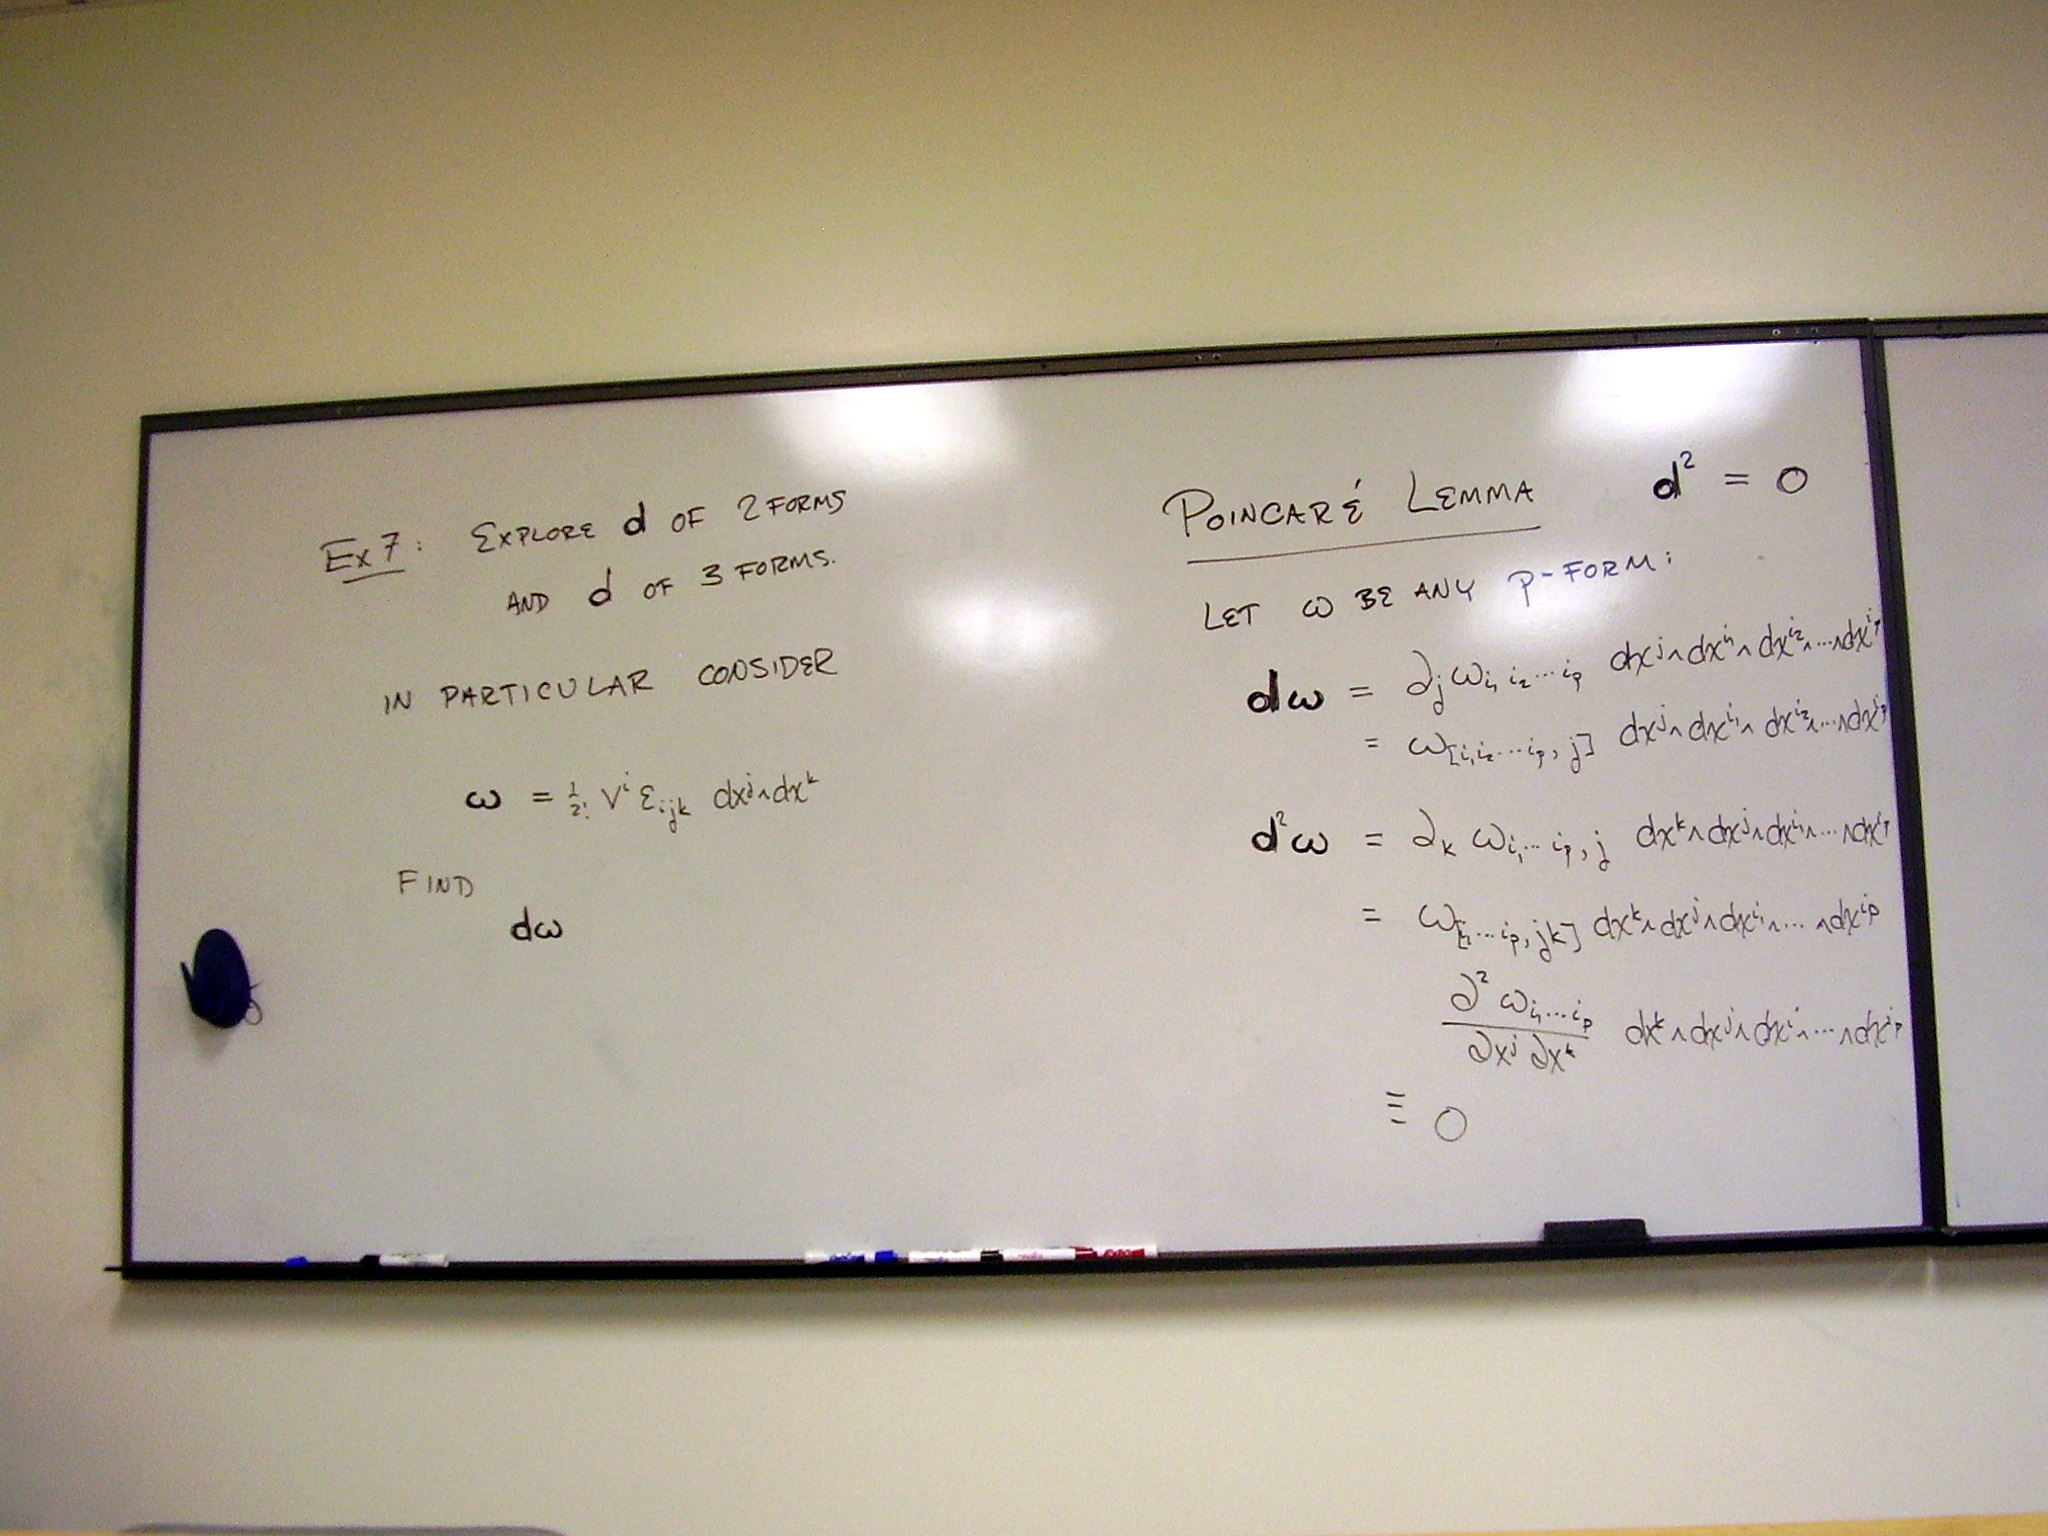 Ex 7: EXPLORE d OF 2 FORMS
AND d OF 3 FORMS.
IN PARTICULAR CONSIDER
ω = 1/2! V^i ε_{ijk} dx^j∧dx^k
FIND
dω
POINCARÉ LEMMA d² = 0
LET ω BE ANY p-FORM:
dω = ∂_j ω_{i_1 i_2 ⋯ i_p} dx^j∧dx^{i_1}∧dx^{i_2}∧⋯∧dx^{i_p}
= ω_{[i_1 i_2 ⋯ i_p, j]} dx^j∧dx^{i_1}∧dx^{i_2}∧⋯∧dx^{i_p}
d²ω = ∂_k ω_{i_1 ⋯ i_p, j} dx^k∧dx^j∧dx^{i_1}∧⋯∧dx^{i_p}
= ω_{[i_1 ⋯ i_p, jk]} dx^k∧dx^j∧dx^{i_1}∧⋯∧dx^{i_p}
∂² ω_{i_1 ⋯ i_p} / ∂x^j ∂x^k dx^k∧dx^j∧dx^{i_1}∧⋯∧dx^{i_p}
≡ 0